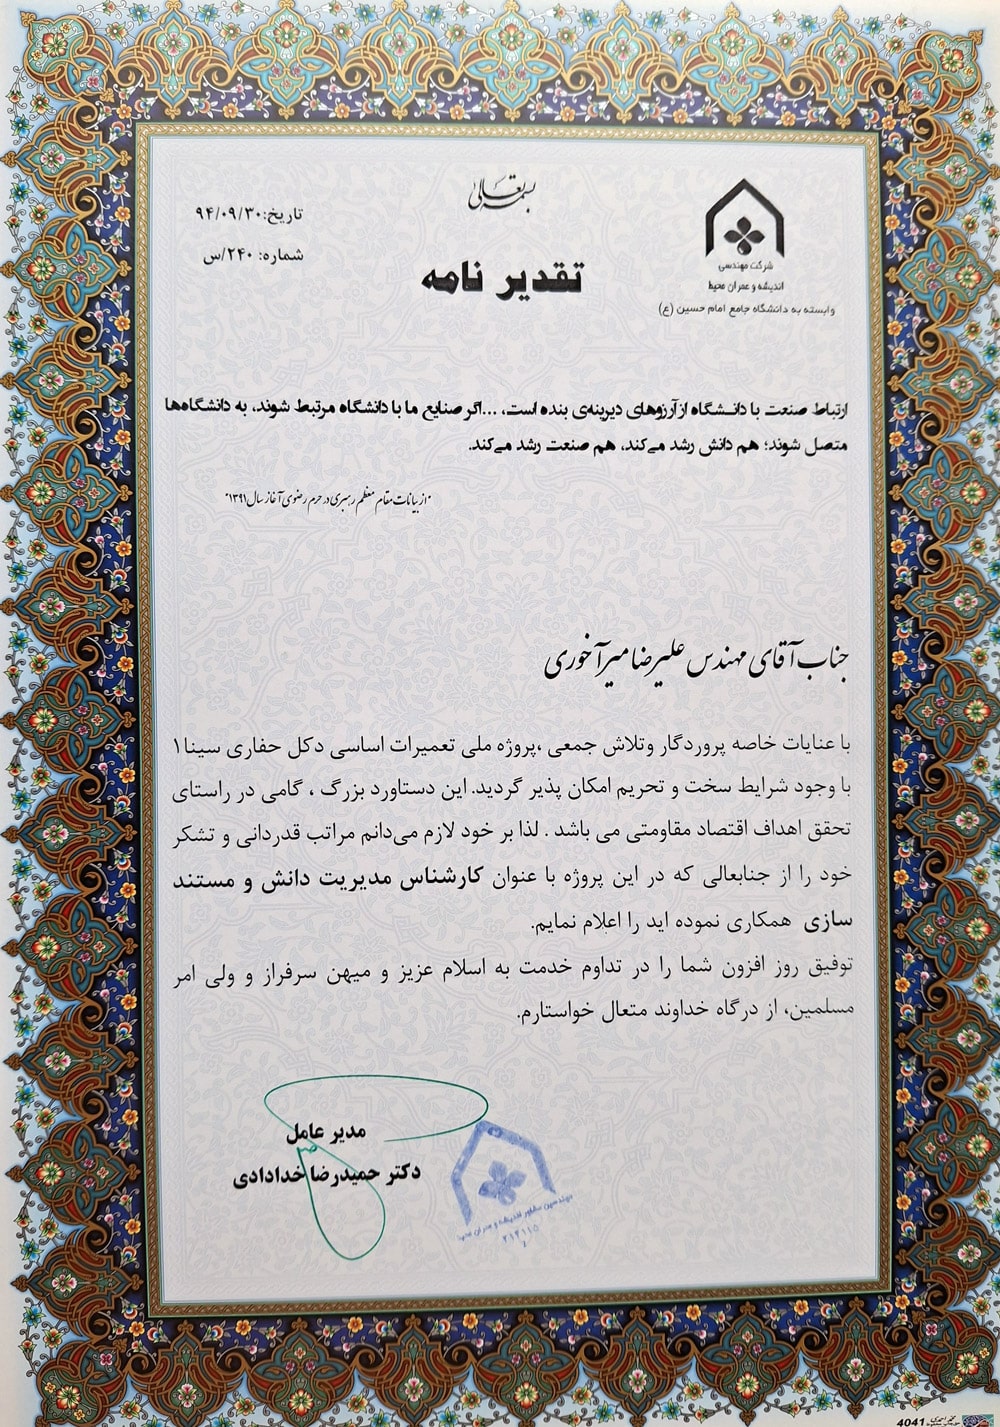 بسمه تعالی
تاریخ: ۹۴/۰۹/۳۰
شماره: ۲۴۰/س
شرکت مهندسی
اندیشه و عمران محیط
وابسته به دانشگاه جامع امام حسین (ع)
تقدیر نامه
ارتباط صنعت با دانشگاه از آرزوهای دیرینه‌ی بنده است، ...اگر صنایع ما با دانشگاه مرتبط شوند، به دانشگاه‌ها
متصل شوند؛ هم دانش رشد می‌کند، هم صنعت رشد می‌کند.
"از بیانات مقام معظم رهبری در حرم رضوی آغاز سال ۱۳۹۱"
جناب آقای مهندس علیرضا میرآخوری
با عنایات خاصه پروردگار وتلاش جمعی ،پروژه ملی تعمیرات اساسی دکل حفاری سینا۱
با وجود شرایط سخت و تحریم امکان پذیر گردید. این دستاورد بزرگ ، گامی در راستای
تحقق اهداف اقتصاد مقاومتی می باشد . لذا بر خود لازم می‌دانم مراتب قدردانی و تشکر
خود را از جنابعالی که در این پروژه با عنوان کارشناس مدیریت دانش و مستند
سازی همکاری نموده اید را اعلام نمایم.
توفیق روز افزون شما را در تداوم خدمت به اسلام عزیز و میهن سرفراز و ولی امر
مسلمین، از درگاه خداوند متعال خواستارم.
مدیر عامل
دکتر حمیدرضا خدادادی
مهندسین مشاور اندیشه و عمران محیط
4041